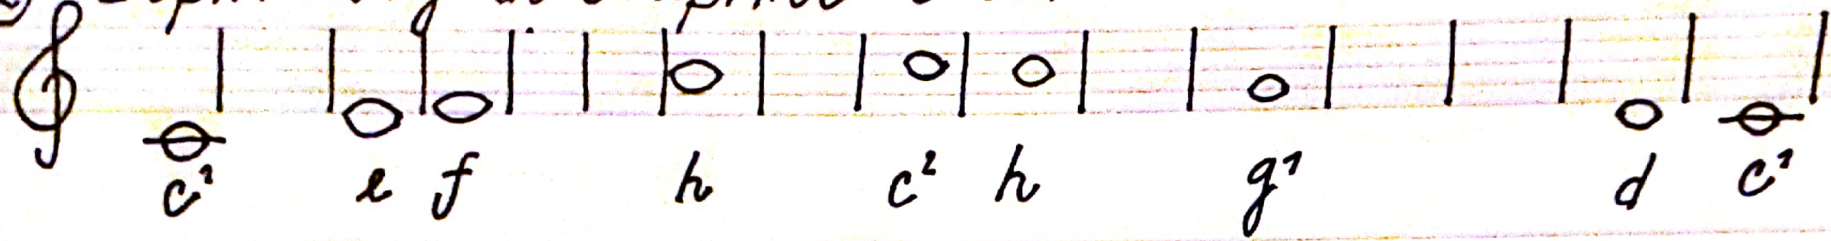 c¹ e f h c² h g¹ d c¹